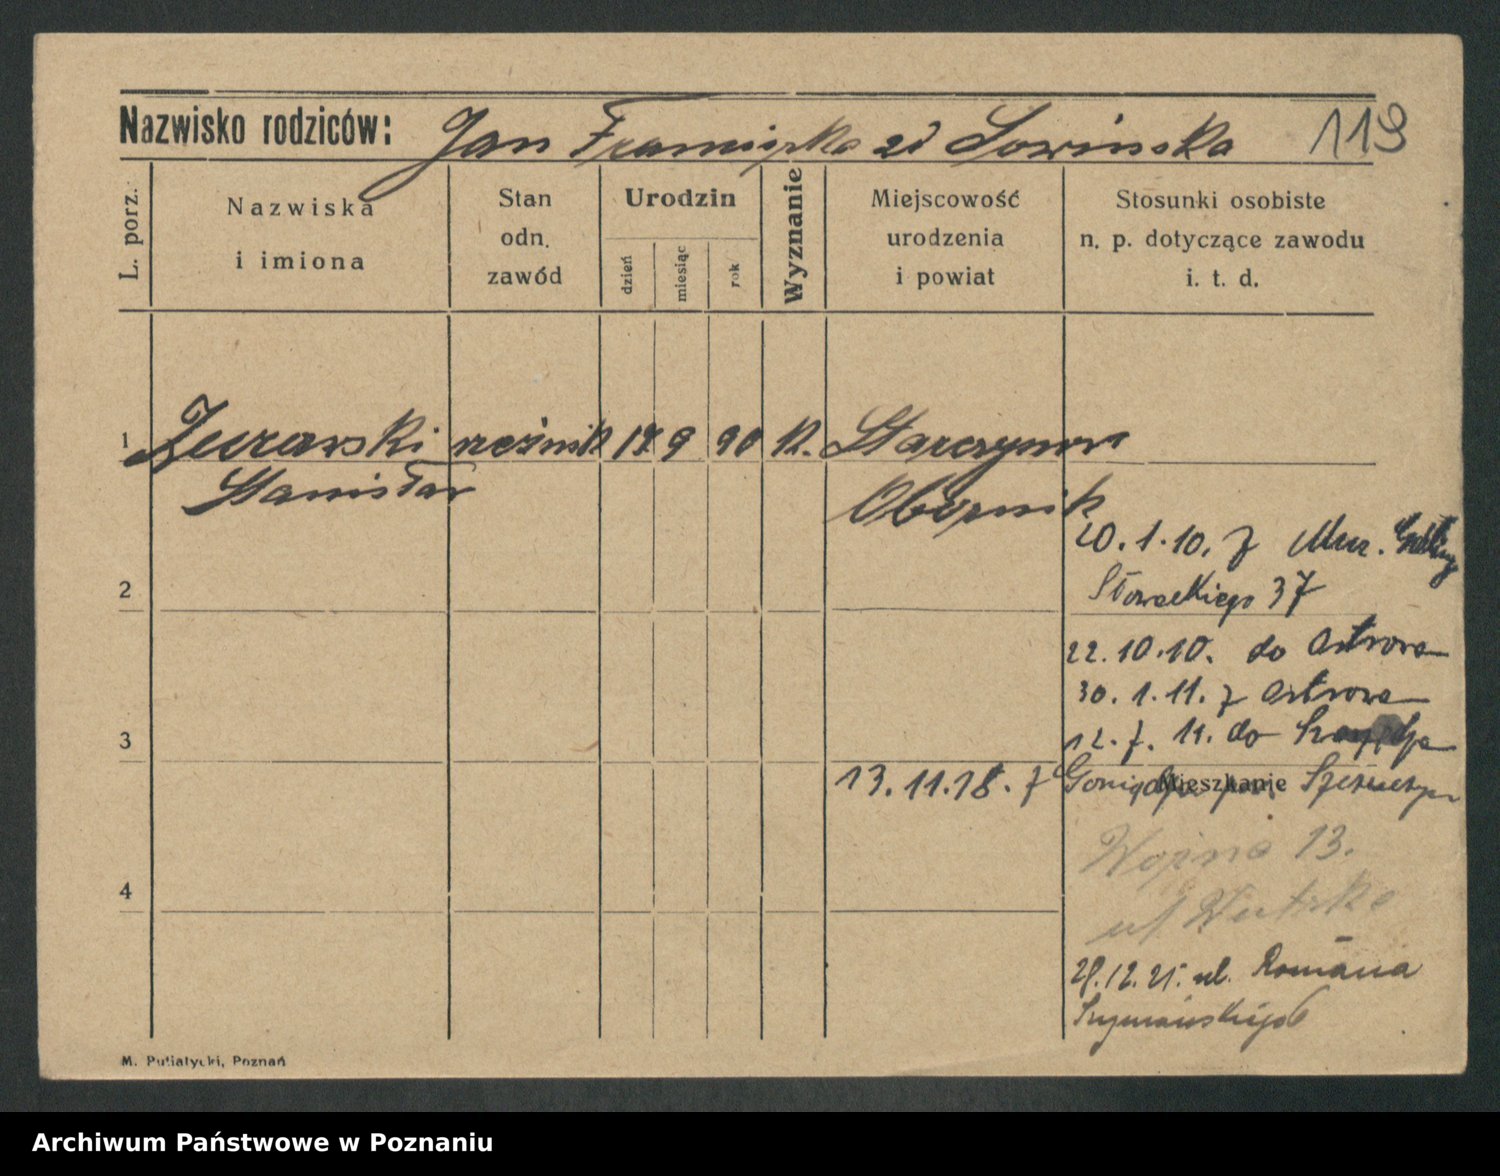 Nazwisko rodziców: Jan Franciszka zd Sowińska 119
L. porz.
Nazwiska
i imiona
Stan
odn.
zawód
Urodzin
dzień
miesiąc
rok
Wyznanie
Miejscowość
urodzenia
i powiat
Stosunki osobiste
n. p. dotyczące zawodu
i. t. d.
1 Żurawski rzeźnik 9 90 K.
Stanisław Obornik
20.1.10. z Mur.
2 Słowackiego 37
22.10.10. do Ostrowa
30.1.11. z Ostrowa
3 12.7.11. do
13.11.18. z
Mieszkanie
Wojna 13.
4
ul.
12.21. ul. Romana
Szymańskiego 6
M. Putiatycki, Poznań
Archiwum Państwowe w Poznaniu